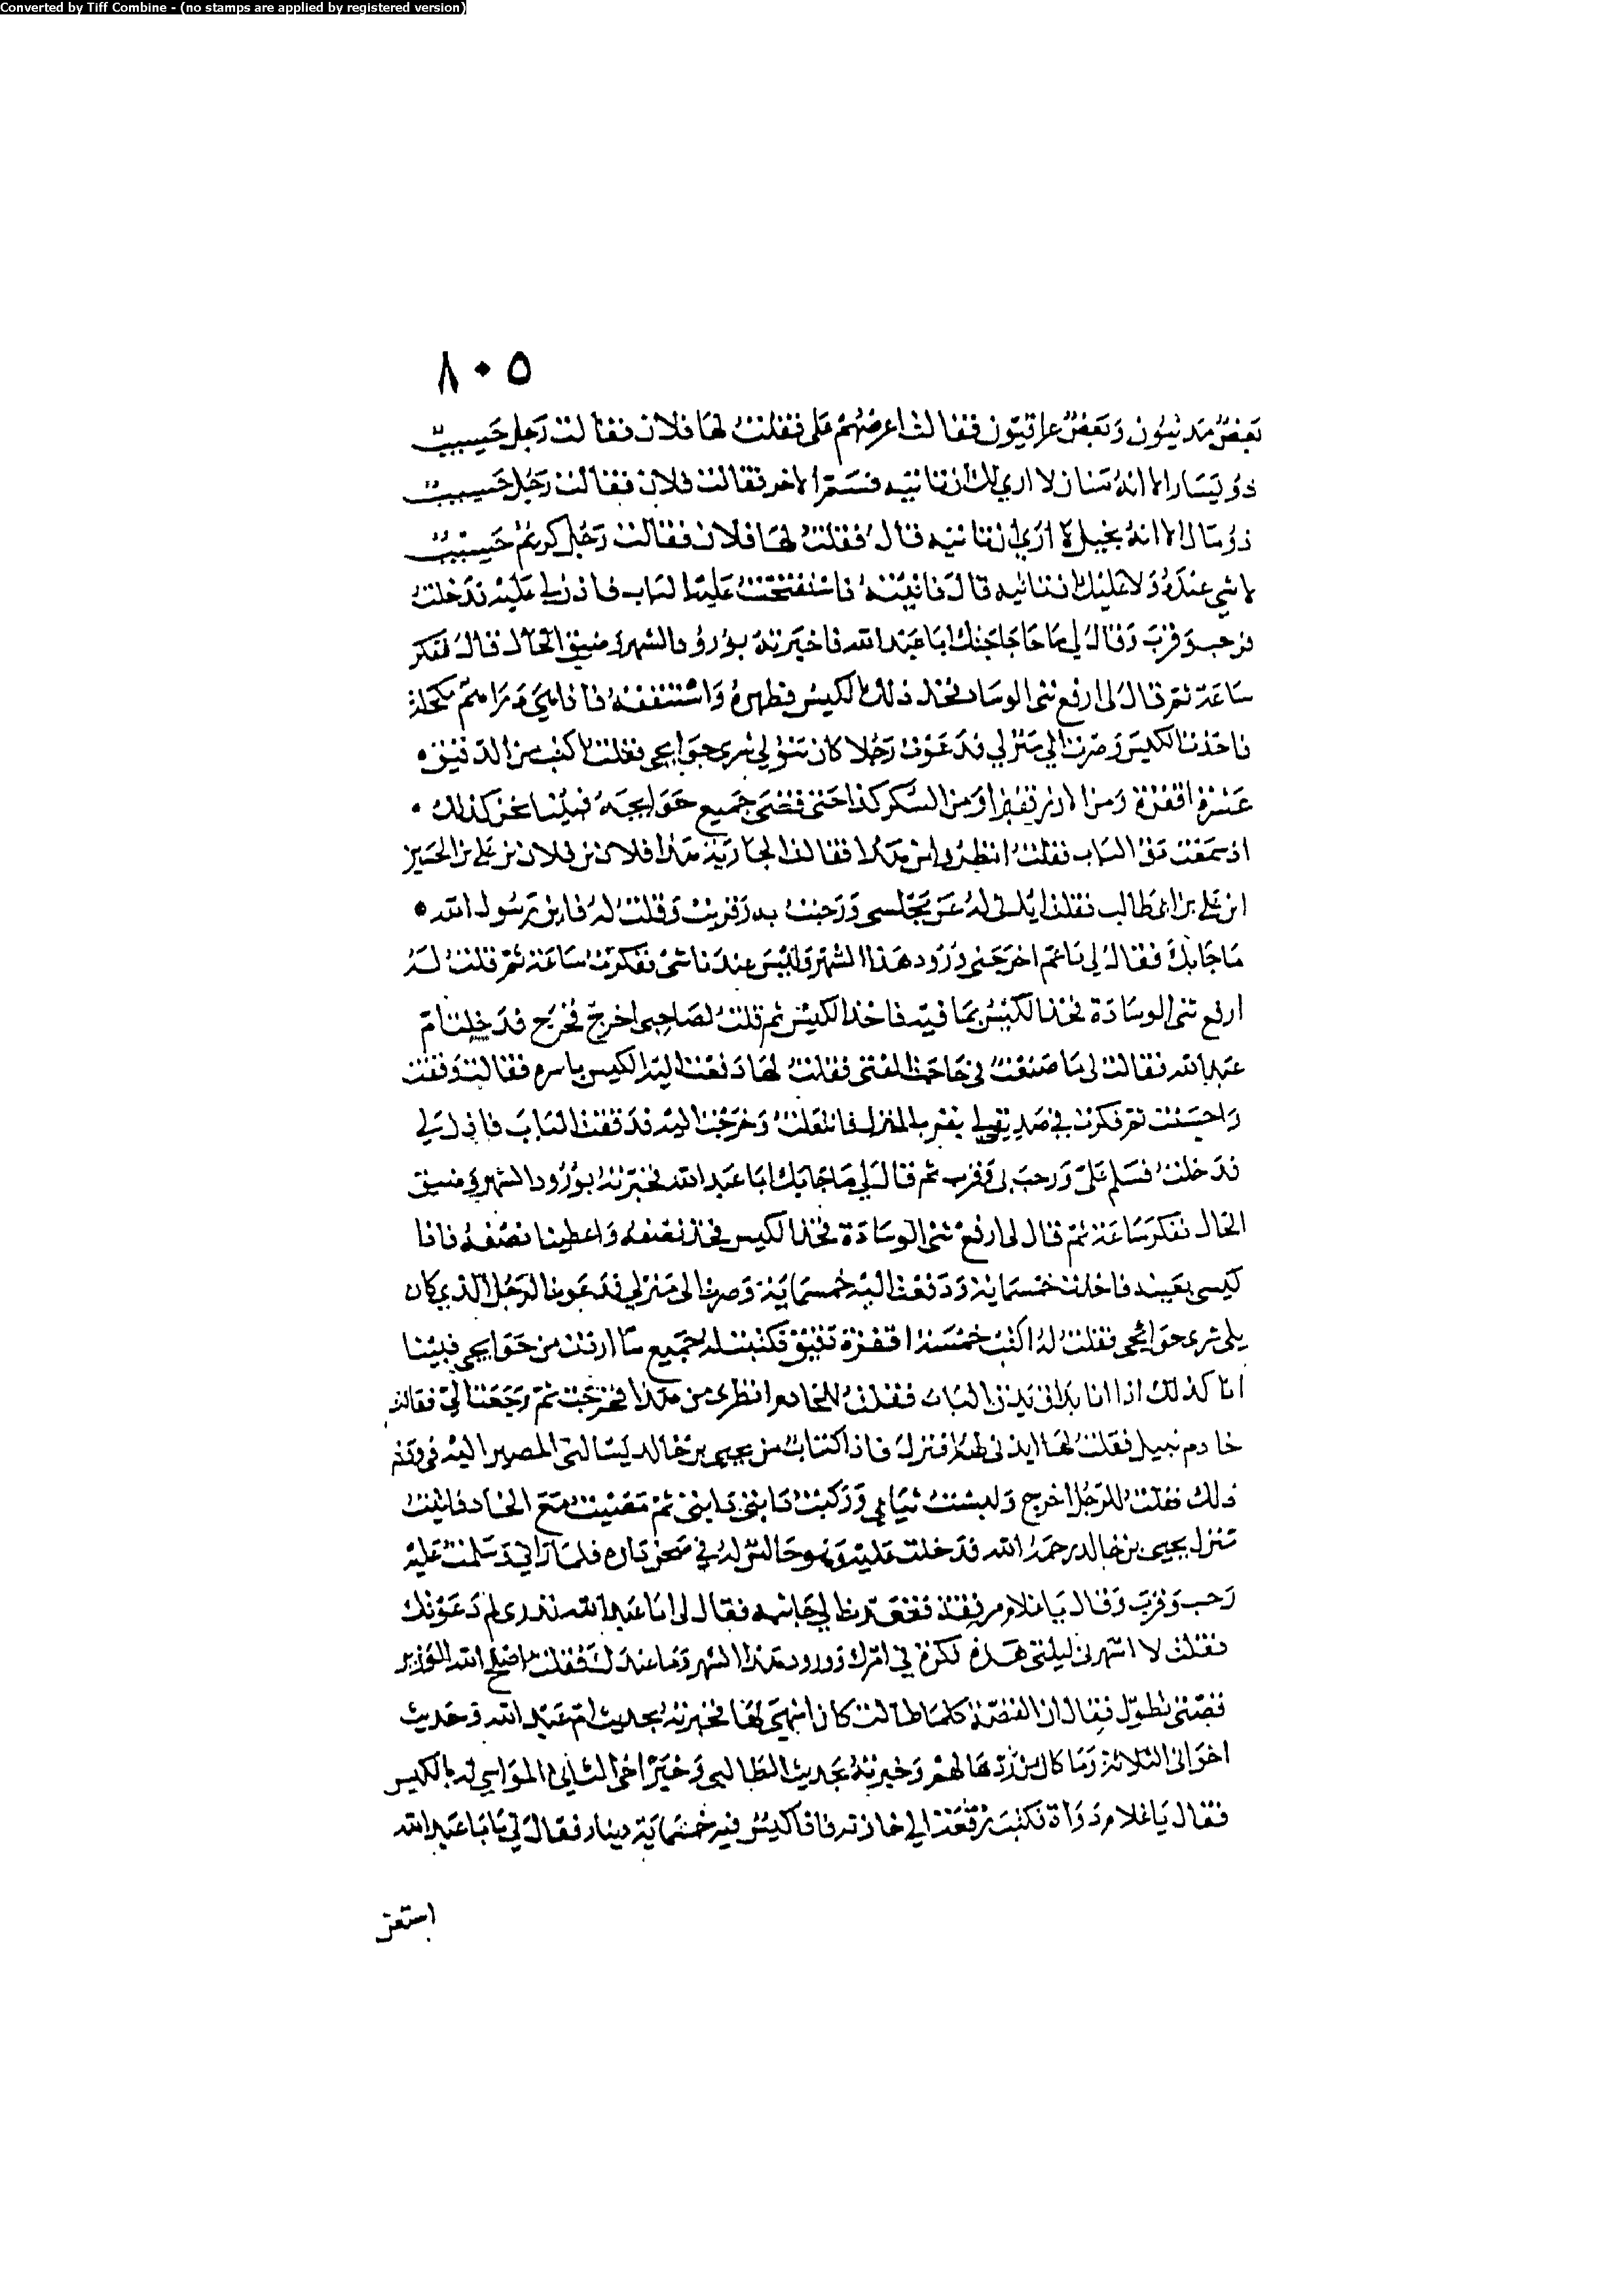 Converted by Tiff Combine - (no stamps are applied by registered version)
٨٠٥
بعض مدنيون وبعض عراقيون فقالت اعرضهم علي فقلت لها فلان فقالت رجل حسيب
ذو يسار الا انه منان لا اري لك ان تاتيه فسم الاخر فقالت فلان فقالت رجل حسيب
ذو مال الا انه بخيل لا اري ان تاتيه قال فقلت لها فلان فقالت رجل كريم حسيب
لا شي عنده ولا عليك ان تاتيه قال فاتيته فاستفتحت عليه الباب فاذن لي عليه فدخلت
فرحب وقرب وقال لي ما حاجتك ابا عبد الله فاخبرته بورود الشهر وضيق الحال قال ففكر
ساعة ثم قال لي ارفع ثني الوسادة فخذ ذلك الكيس فطهره واستنفقه فاذا هي دراهم مكحلة
فاخذت الكيس وصرت الي منزلي فدعوت رجلا كان يتولي شري حوايجي فقلت اكتب من الدقيق
عشرة اقفزة ومن الارز قفيزا ومن السكر كذا حتى قضى جميع حوايجه فبينا نحن كذلك
اذ سمعت دق الباب فقلت انظروا من هذا فقالت الجارية هذا فلان بن فلان بن علي بن الحسين
ابن علي بن ابي طالب فقلت ايذني له عن مجلسي ورحبت به وقربت وقلت له يابن رسول الله
ما جا بك فقال لي ياعم اخرجني ورود هذا الشهر وليس عندنا شي ففكرت ساعة ثم قلت له
ارفع ثني الوسادة فخذ الكيس بما فيه فاخذ الكيس ثم قلت لصاحبي اخرج فخرج فدخلت ام
عبد الله فقالت لي ما صنعت في حاجة الفتى فقلت لها دفعت اليه الكيس باسره فقالت وفقت
واحسنت ثم فكرت في صديق لي بقرب المنزل فانتعلت وخرجت اليه فدققت الباب فاذن لي
فدخلت فسلم علي ورحب بي وقرب ثم قال لي ما جا بك ابا عبد الله فخبرته بورود الشهر وضيق
الحال ففكر ساعة ثم قال لي ارفع ثني الوسادة فخذ الكيس فخذ نصفه واعطينا نصفه فاذا
كيسي بعينه فاخذت خمسماية ودفعت اليه خمسماية وصرت الى منزلي فدعوت الرجل الذي كان
يلي شري حوايجي فقلت له اكتب خمسة اقفزة دقيق فكتب لي جميع ما اردت من حوايجي فبينا
انا كذلك اذا انا بداق يدق الباب فقلت للخادم انظري من هذا فخرجت ثم رجعت الي فقالت
خادم نبيل فقلت لها ايذني له فنزل فاذا كتاب من يحيى بن خالد يسالني المصير اليه في وقته
ذلك فقلت للرجل اخرج ولبست ثيابي وركبت دابتي دابتي ثم مضيت مع الخادم فاتيت
منزل يحيى بن خالد رحمه الله فدخلت عليه وهو جالس له في صحن داره فلما راني وسلمت عليه
رحب وقرب وقال يا غلام مرفقة فقعدت الي جانبه فقال لي ابا عبد الله تدري لم دعوتك
فقلت لا اسهرني ليلتي هذه فكري في امرك وورود هذا الشهر وما عندك فقلت اصلح الله الوزير
قصتي تطول فقال ان القصة كلما طالت كان اشهى لها فخبرته بحديث ام عبد الله وحديث
اخواني الثلاثة وما كان من ردها لهم وخبرته بحديث الطالبي وخبر اخي الثاني المواسي له بالكيس
فقال يا غلام دواة فكتب رقعة الي خازنه فاذا كيس فيه خمسماية دينار فقال لي يا ابا عبد الله
استعن